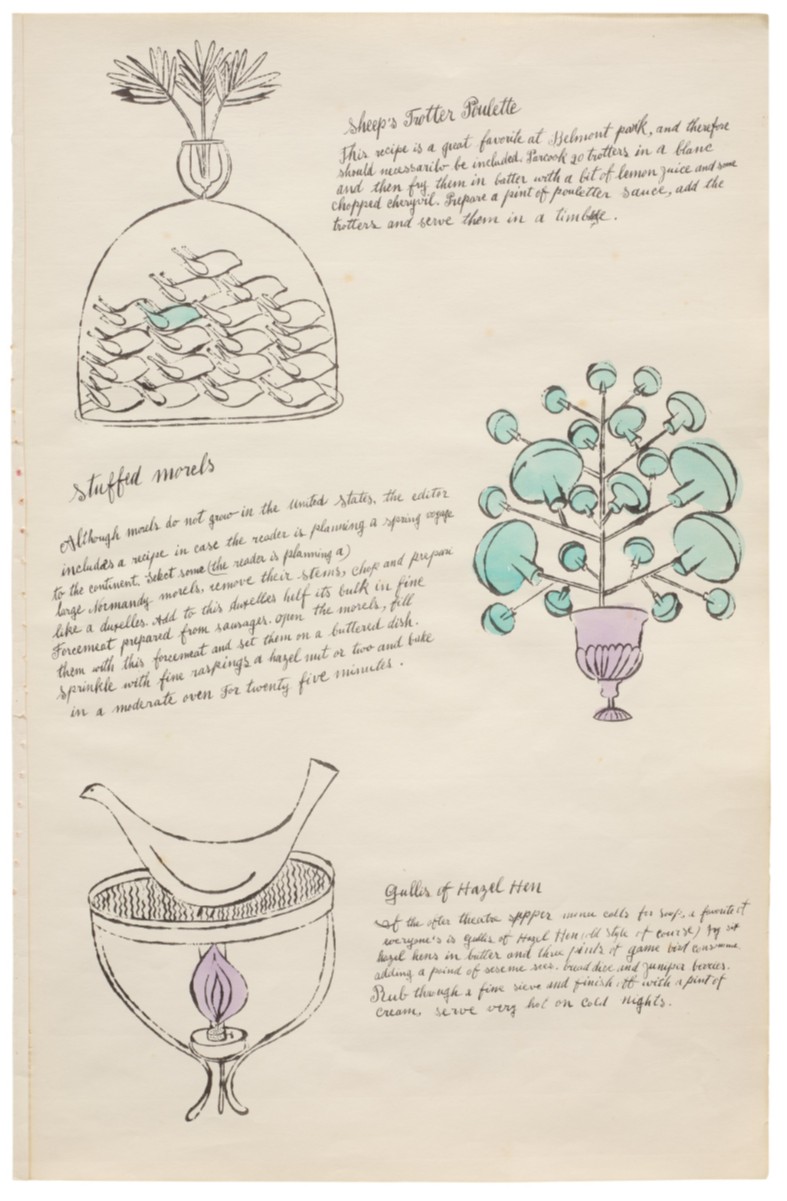 Sheep's Trotter Poulette
This recipe is a great favorite at Belmont park, and therefore
should necessarilo be included. Parcook 20 trotters in a blanc
and then fry them in batter with a bit of lemon juice and some
chopped chervil. Prepare a pint of pouletter sauce, add the
trotters and serve them in a timbale.
Stuffed morels
Although morels do not grow in the United States, the editor
includes a recipe in case the reader is planning a spring voyage
to the continent. Select some (the reader is planning a)
large Normandy morels, remove their stems, chop and prepare
like a duxelles. Add to this duxelles half its bulk in fine
Forcemeat prepared from sausages. open the morels, fill
them with this forcemeat and set them on a buttered dish.
Sprinkle with fine raspings a hazel nut or two and bake
in a moderate oven For twenty five minutes.
Gulles of Hazel Hen
If the after theatre supper menu calls for soup, a favorite of
everyone's is Gulles of Hazel Hen (old style of course) Fry six
hazel hens in butter and three pints of game bird consomme
adding a pound of bread dice and juniper berries.
Rub through a fine sieve and finish off with a pint of
cream, serve very hot on cold nights.